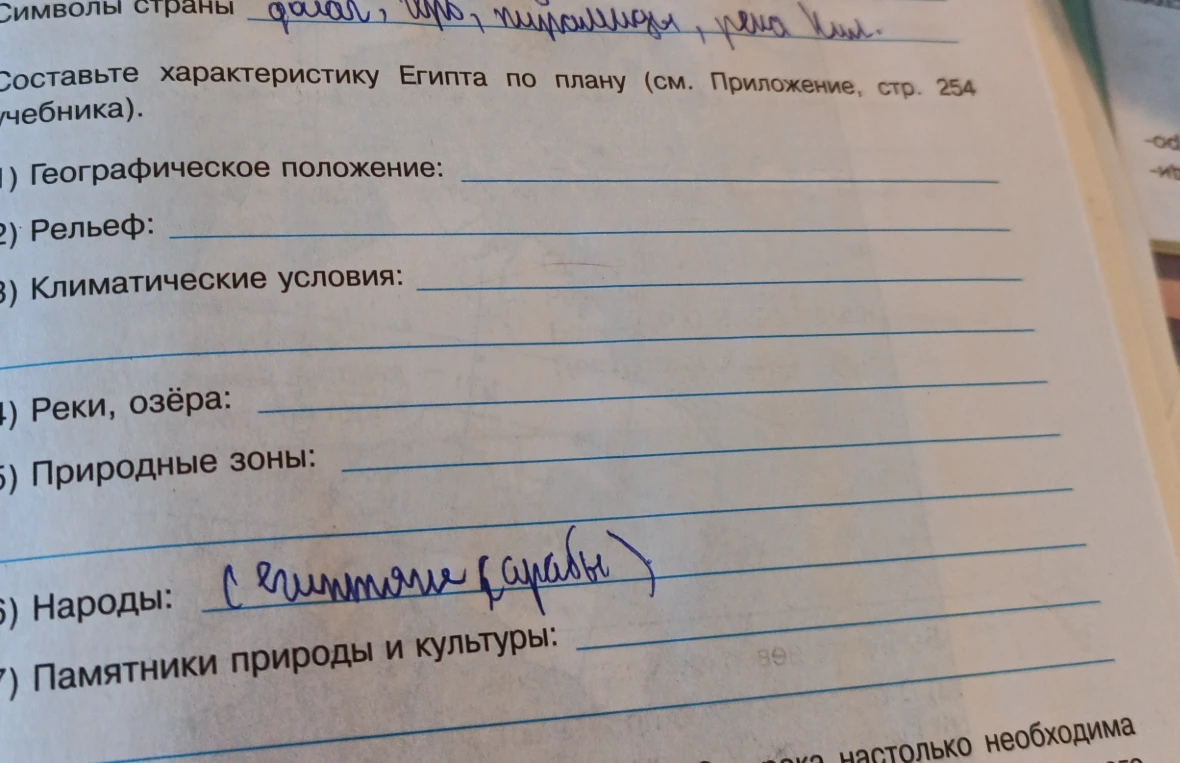 Символы страны флаг, ..., пирамиды, река Нил.
Составьте характеристику Египта по плану (см. Приложение, стр. 254
учебника).
1) Географическое положение:
2) Рельеф:
3) Климатические условия:
4) Реки, озёра:
5) Природные зоны:
6) Народы: (египтяне (арабы)
7) Памятники природы и культуры:
настолько необходима